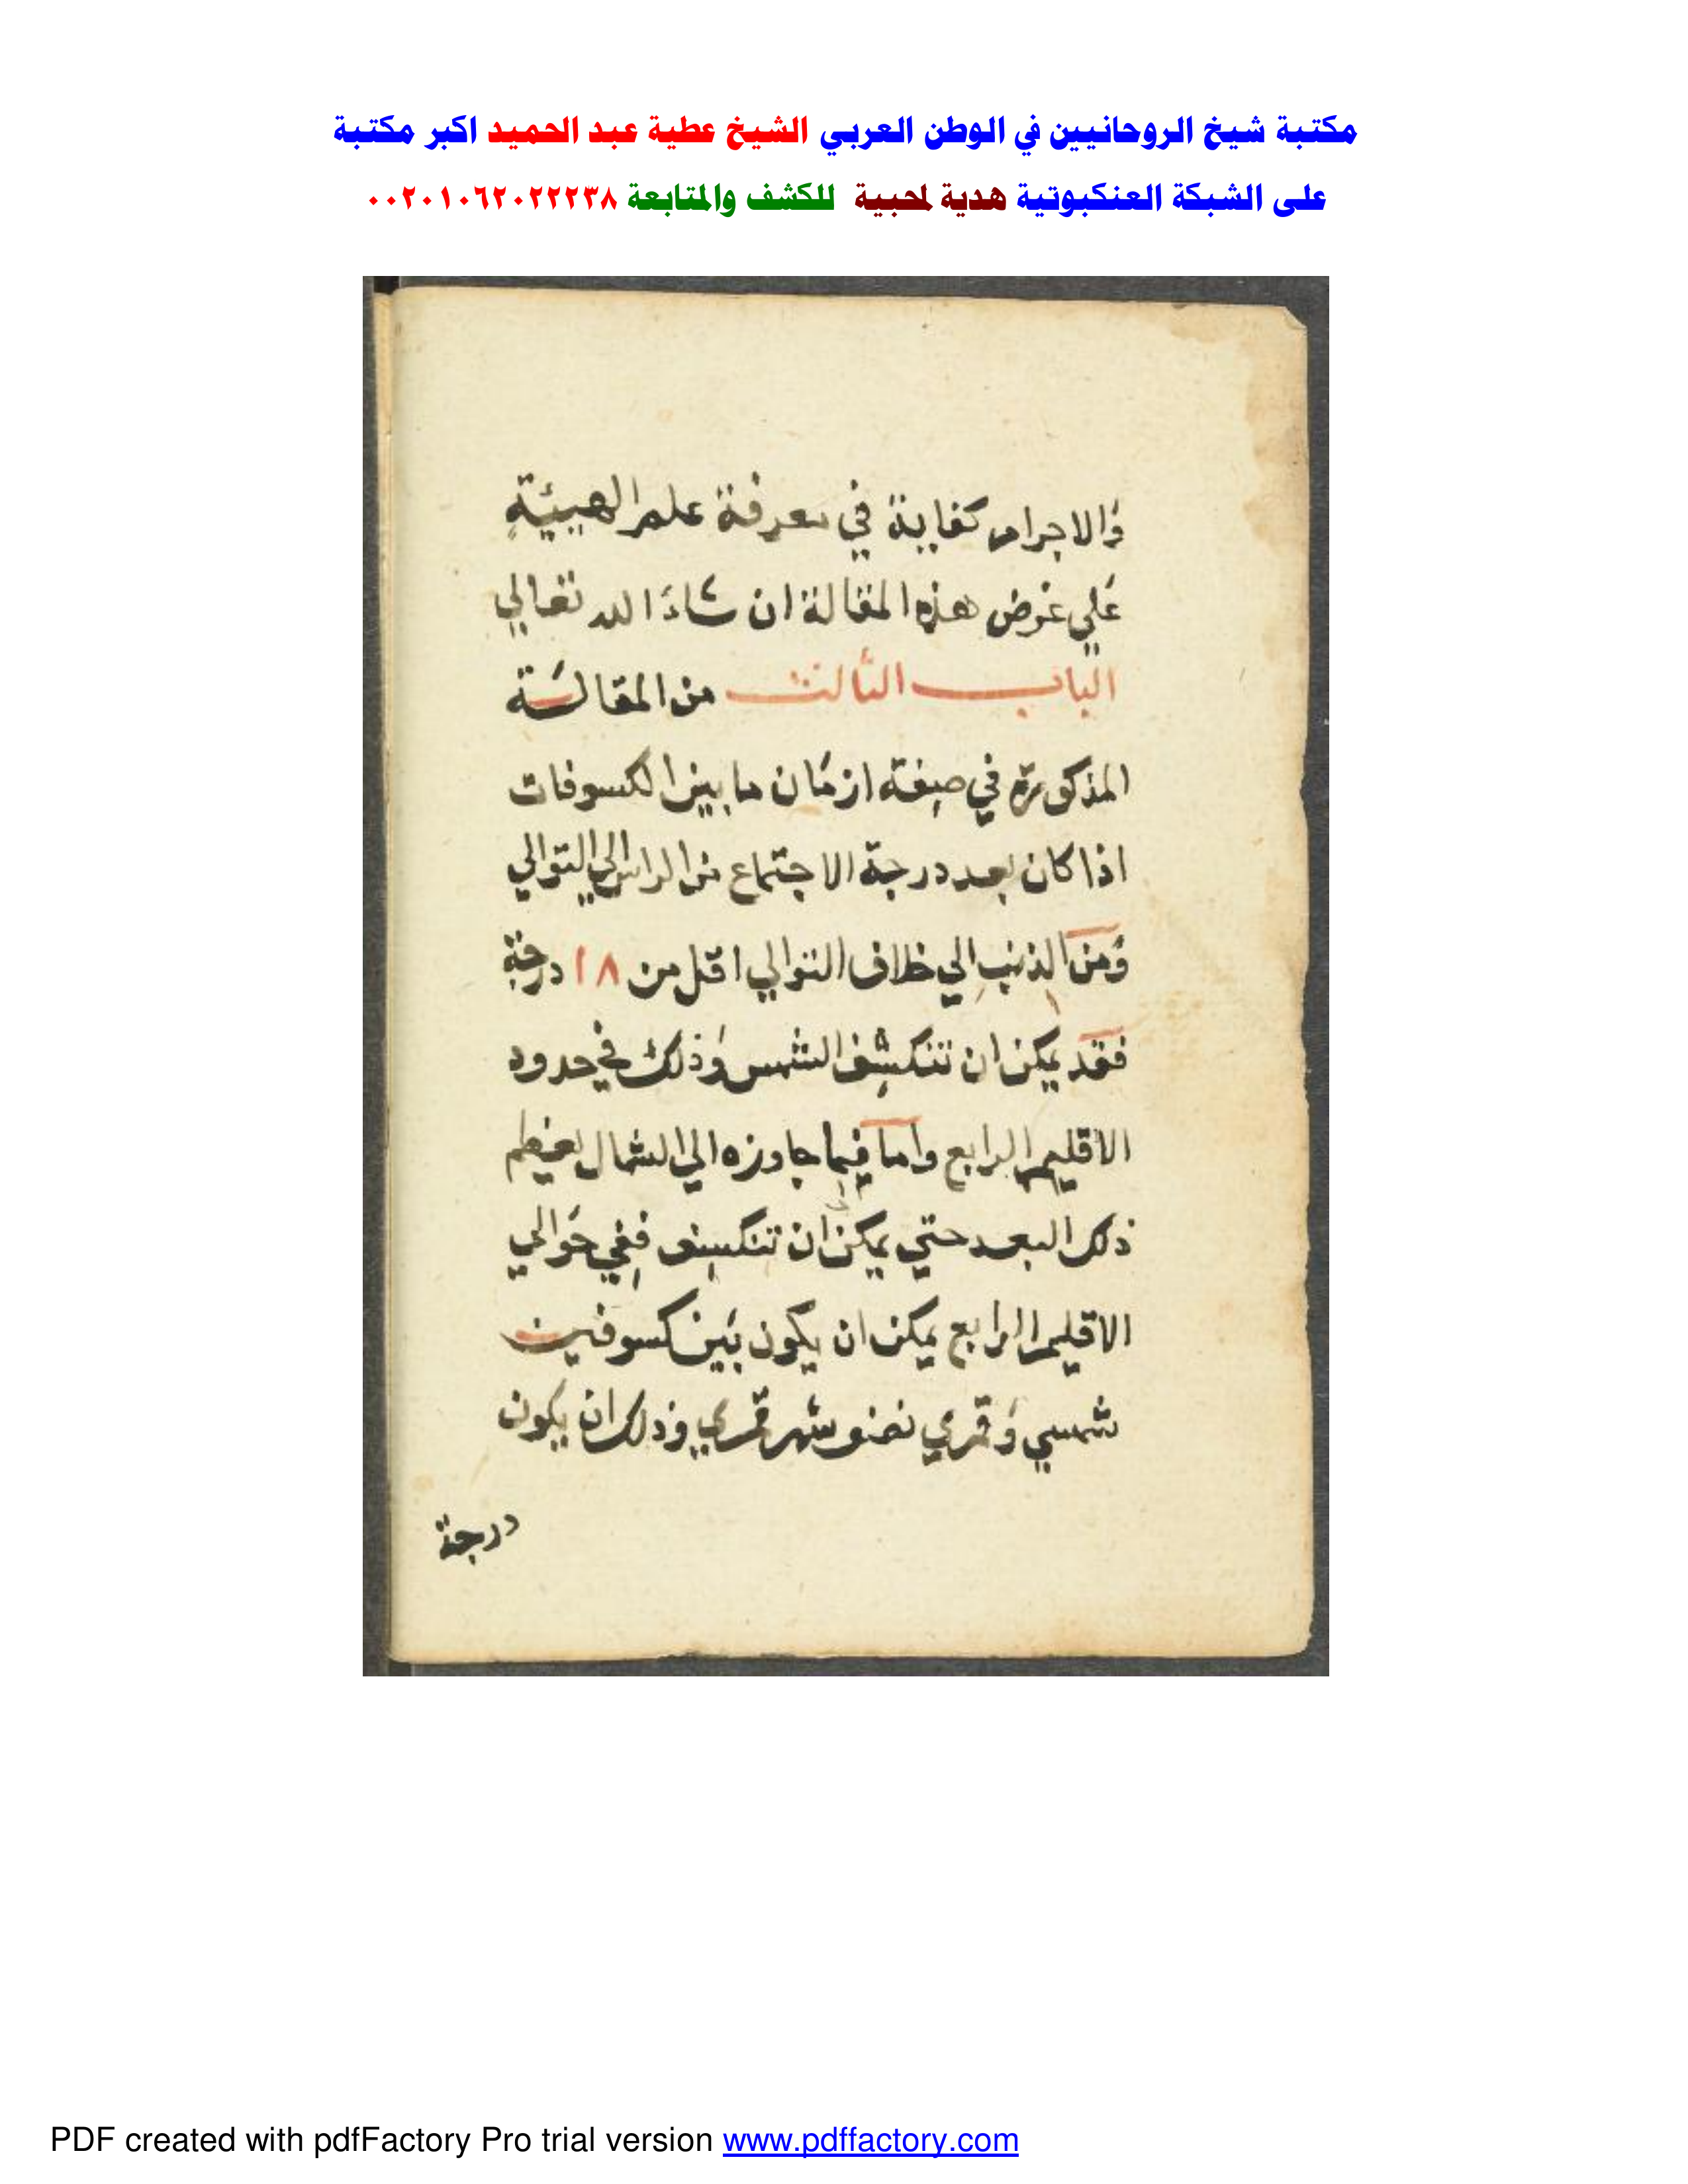 مكتبة شيخ الروحانيين في الوطن العربي الشيخ عطية عبد الحميد اكبر مكتبة
على الشبكة العنكبوتية هدية لمحبية للكشف والمتابعة ٠٠٢٠١٠٦٢٠٢٢٢٣٨
وَالاجرام كفاية في معرفة علم الهيئة
عَلي غرض هذه المقالة ان شاءَ الله تعالي
الباب الثالث من المقالة
المذكورة في صفة ازمَان ما بين الكسوفات
اذا كان بعد درجة الاجتماع من الراس الي التوالي
وَمن الذنب الي خلاف التوالي اقل من ١٨ درجة
فقد يمكن ان تنكسف الشمس وَذلك في حدود
الاقليم الرابع واما فيما جاوزه الي الشمال
ذلك البعد حتي يمكن ان تنكسف ففي حَوالي
الاقليم الرابع يمكن ان يكون بَين كسوفين
شمسي وَقمري نصف شهر قمري وذلك ان يكون
درجة
PDF created with pdfFactory Pro trial version www.pdffactory.com